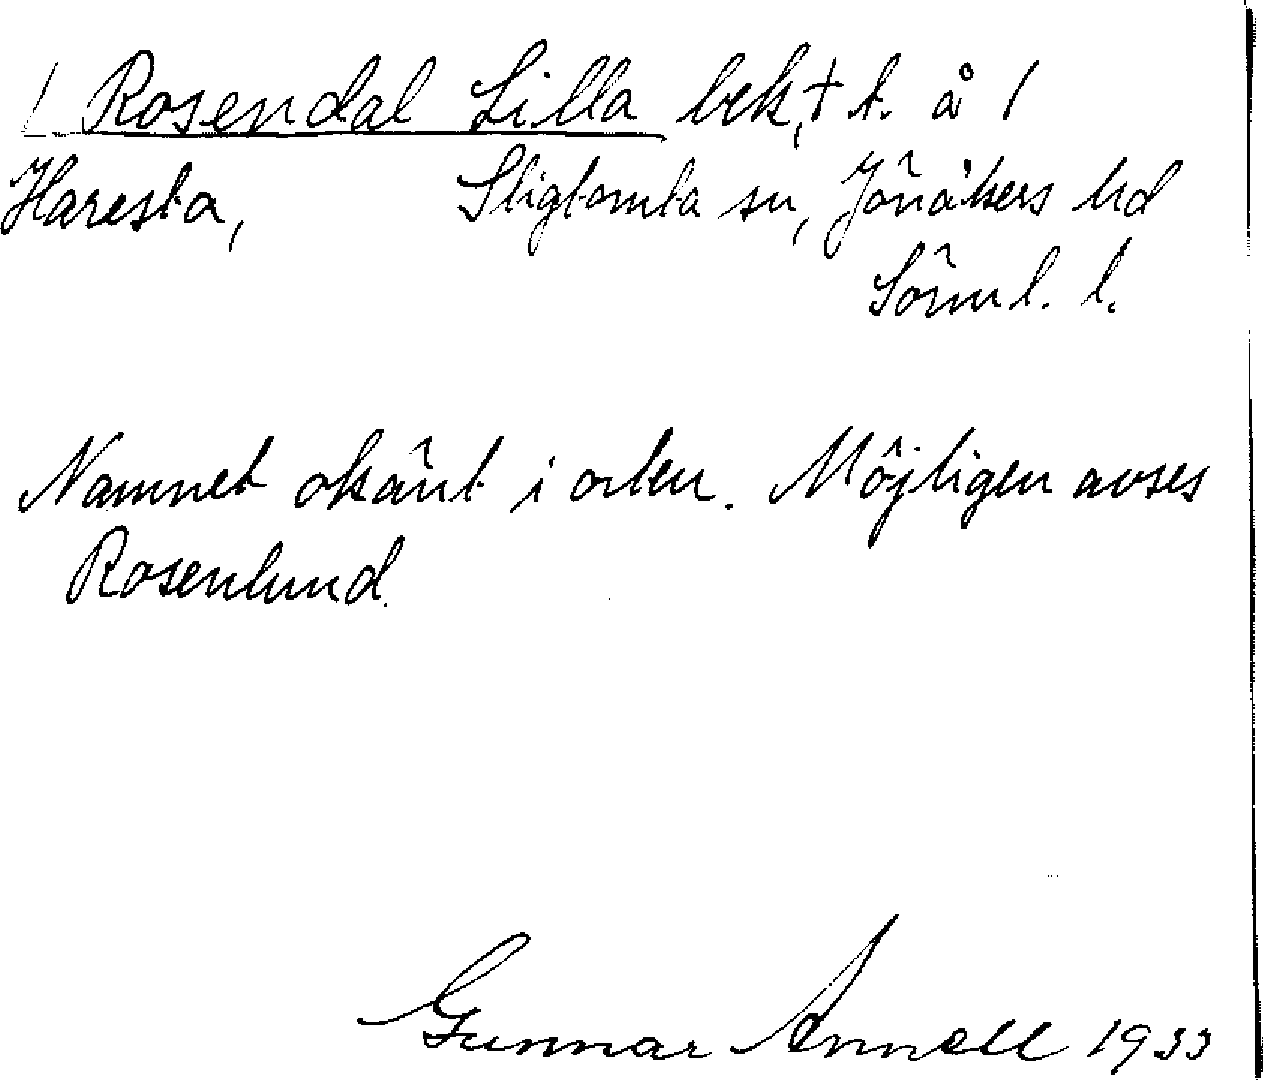 / Rosendal Lilla bek, † t. å /
Haresta, Stigtomta sn, Jönåkers hd
Sörml. l.
Namnet okänt i orten. Möjligen avses
Rosenlund.
Gunnar Annell 1933